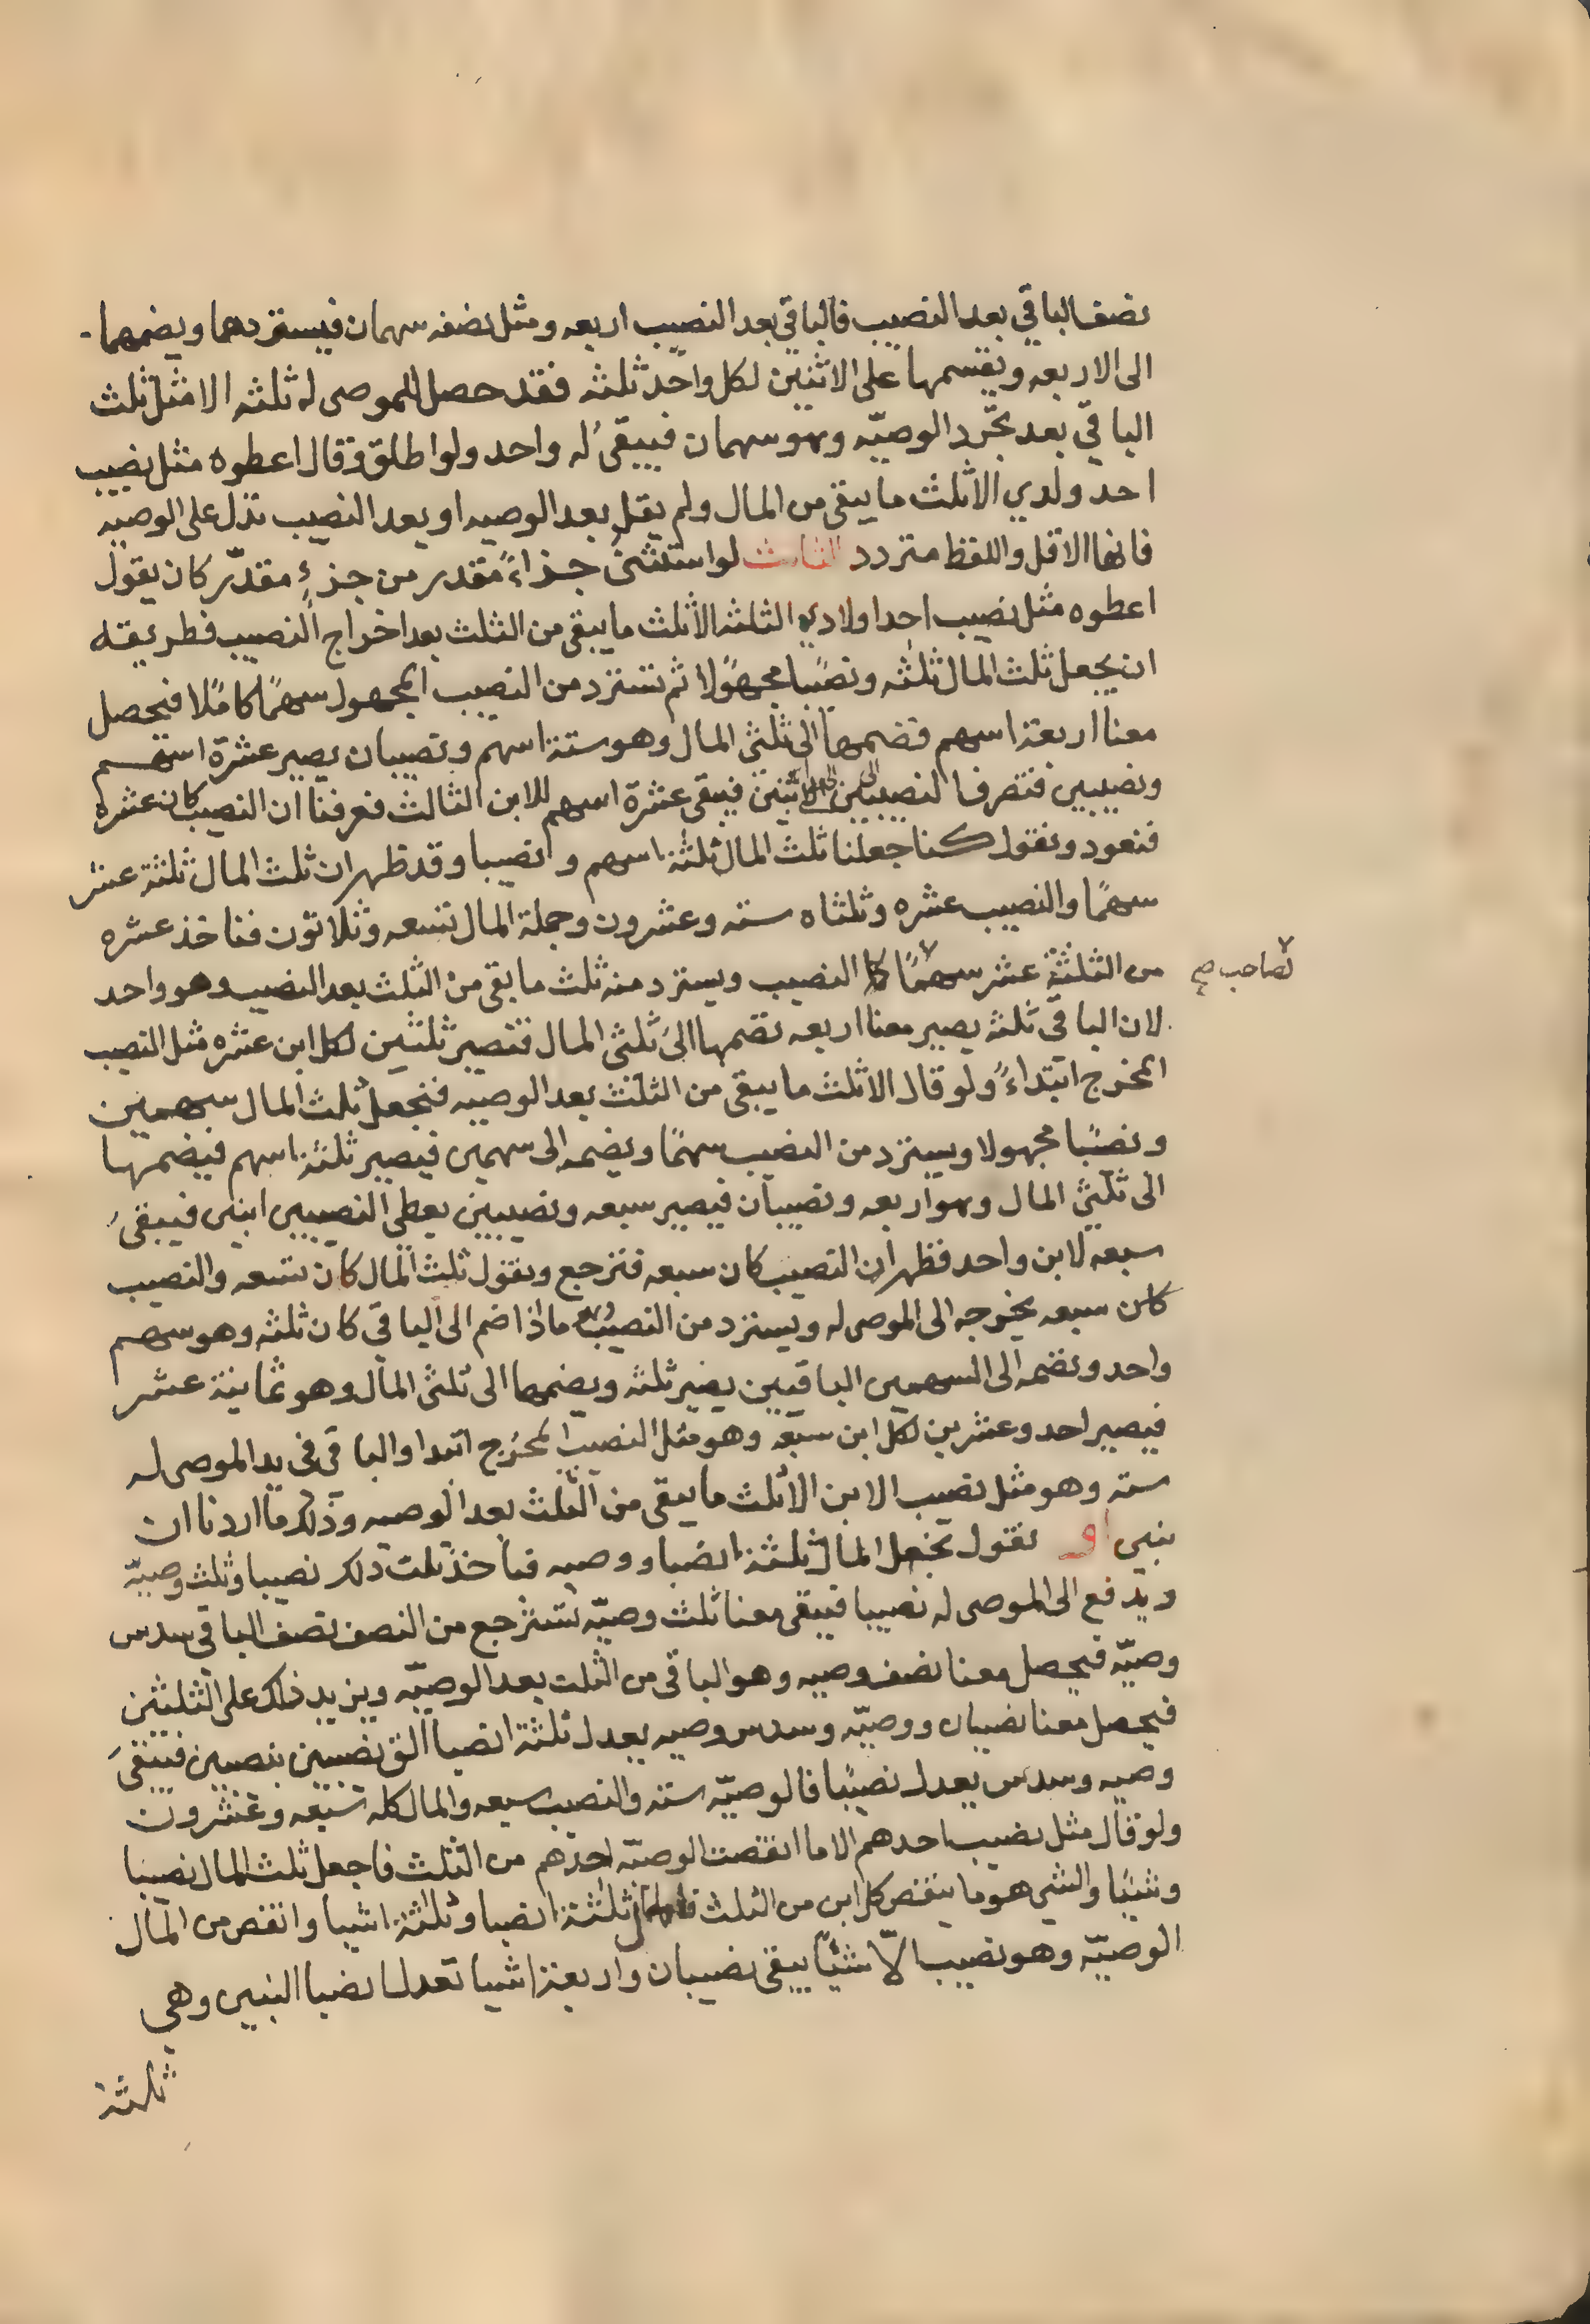 نصف الباقي بعد النصيب فالباقي بعد النصيب اربعه ومثل نصفه سهمان فيسترد هما ويضمهما
الى الاربعه ويقسمها على الاثنين لكل واحد ثلثه فقد حصل للموصى له ثلثه الا مثل ثلث
الباقي بعد تجرد الوصيّه وهو سهمان فيبقى له واحد ولو اطلق وقال اعطوه مثل نصيب
احد ولدي الا ثلث ما يبقى من المال ولم يقل بعد الوصيه او بعد النصيب نزل على الوصيه
فانها الاقل واللفظ متردد الثالث لو استثنى جزاءً مقدر من جزءٍ مقدّر كان يقول
اعطوه مثل نصيب احد اولادي الثلثه الا ثلث ما يبقى من الثلث بعد اخراج النصيب فطريقه
ان يجعل ثلث المال ثلثه ونصيبا مجهولا ثم تسترد من النصيب المجهول سهمًا كاملا فيحصل
معنا اربعة اسهم فضمها الى ثلثى المال وهو ستة اسهم ونصيبان يصير عشرة اسهم
ونصيبين فتصرف النصيبين الى اثنين فيبقى عشرة اسهم للابن الثالث فعرفنا ان النصيب كان عشره
فنعود ونقول كنا جعلنا ثلث المال ثلثة اسهم و انصيبا وقد ظهر ان ثلث المال ثلثة عشر
سهمًا والنصيب عشره وثلثاه سته وعشرون وجملة المال تسعه وثلاثون فناخذ عشره
من الثلثة عشر سهمًا النصيب ويسترد منه ثلث ما بقى من الثلث بعد النصيب وهو واحد
لصاحب صح
لان الباقى ثلثه يصير معنا اربعه نضمها الى ثلثى المال فتصير ثلثين لكل ابن عشره مثل النصيب
المخرج ابتداءً ولو قال الا ثلث ما يبقى من الثلث بعد الوصيه فنجعل ثلث المال سهمين
ونصيبا مجهولا ويسترد من النصيب سهمًا ويضمه الى سهمين فيصير ثلثة اسهم فيضمها
الى ثلثى المال وهو اربعه ونصيبان فيصير سبعه ونصيبين يعطى النصيبين ابنين فيبقى
سبعه لابن واحد فظهر ان النصيب كان سبعه فنرجع ونقول ثلث المال كان تسعه والنصيب
كان سبعه يخرجه الى الموصى له ويسترد من النصيب ما اذا ضم الى الباقى كان ثلثه وهو سهم
واحد ونضمه الى السهمين الباقيين يصير ثلثه ويضمها الى ثلثى المال وهو ثمانية عشر
فيصير احد وعشرين لكل ابن سبعه وهو مثل النصيب المخرج ابتدا والباقى فى يد الموصى له
سته وهو مثل نصيب الابن الا ثلث ما يبقى من الثلث بعد الوصيه وذلك ما اردنا ان
نبين او نقول نجعل المال ثلثة انصبا ووصيه فناخذ ثلث ذلك نصيبا وثلث وصيّه
ويدفع الى الموصى له نصيبا فيبقى معنا ثلث وصيّه نسترجع من النصف نصف الباقى سدس
وصيّه فيحصل معنا نصف وصيه وهو الباقى من الثلث بعد الوصيّه ويزيد ذلك على الثلثين
فيحصل معنا نصيبان ووصيّه وسدس وصيه يعدل ثلثة انصبا الق نصيبين بنصيبين فيبقى
وصيه وسدس يعدل نصيبا فالوصيّه سته والنصيب سبعه والمال كله سبعه وعشرون
ولو قال مثل نصيب احدهم الا ما انقصت الوصيّه احدهم من الثلث فاجعل ثلث المال نصيبا
وشيئا والشى هو ما ينقص كل ابن من الثلث ثلثة انصبا وثلثة اشيا وانقص من المال
الوصيّه وهو نصيب الّا شيئًا يبقى نصيبان واربعة اشيا تعدل انصبا البنين وهى
ثلثة